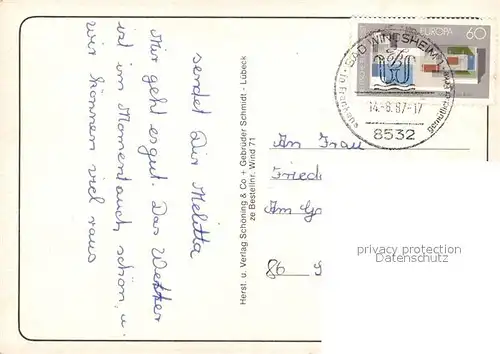 Mir geht es gut. Das Wetter
ist im Moment auch schön, u.
wir können viel raus
sendet Dir Melitta
Herst. u. Verlag Schöning & Co + Gebrüder Schmidt - Lübeck
ze Bestellnr. Wind 71
EUROPA 60
BAD WINDSHEIM 1
in Franken
14.-6.87-17
8532
gemütlich
An Frau
Fried
Am G
86
privacy protection
Datenschutz